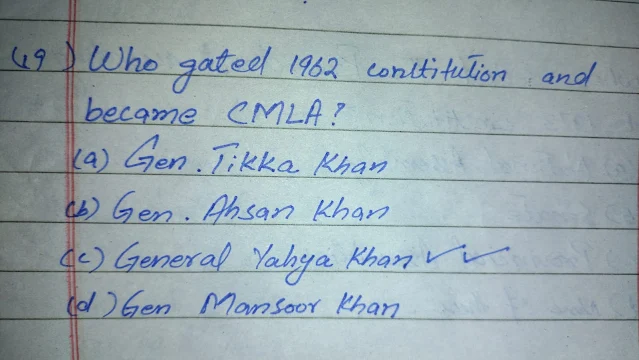 (19) Who gated 1962 constitution and
became CMLA?
(a) Gen. Tikka Khan
(b) Gen. Ahsan Khan
(c) General Yahya Khan ✓✓
(d) Gen Mansoor Khan